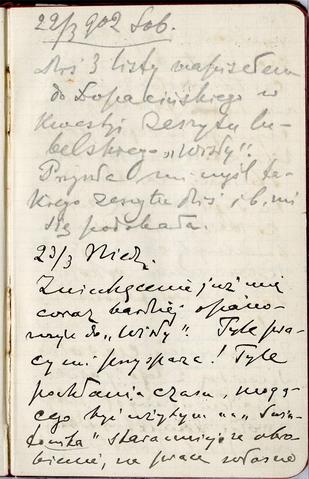 22/3 902 Sob.
Dziś 3 listy napisałem
do Łopacińskiego w
kwestyi zeszytu lu-
belskiego „Wisły".
Przysłał mi myśl ta-
kiego zeszytu dziś, i b. mi
się podobała.
23/3 Niedz.
Zniechęcenie już mię
coraz bardziej opano-
wuje do „Wisły". Tyle pra-
cy mi przysparza! Tyle
pochłania czasu, mogą-
cego być użytym na „Świę-
towita" staranniejsze obro-
bienie, na prace własne